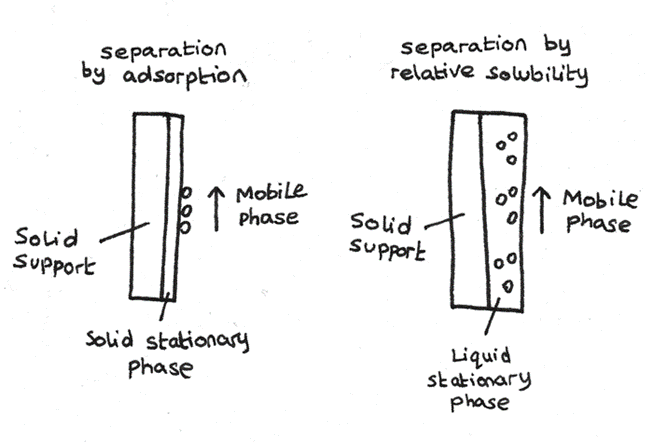 separation
by adsorption
Mobile
phase
Solid
support
Solid stationary
phase
separation by
relative solubility
Mobile
phase
Solid
support
Liquid
stationary
phase